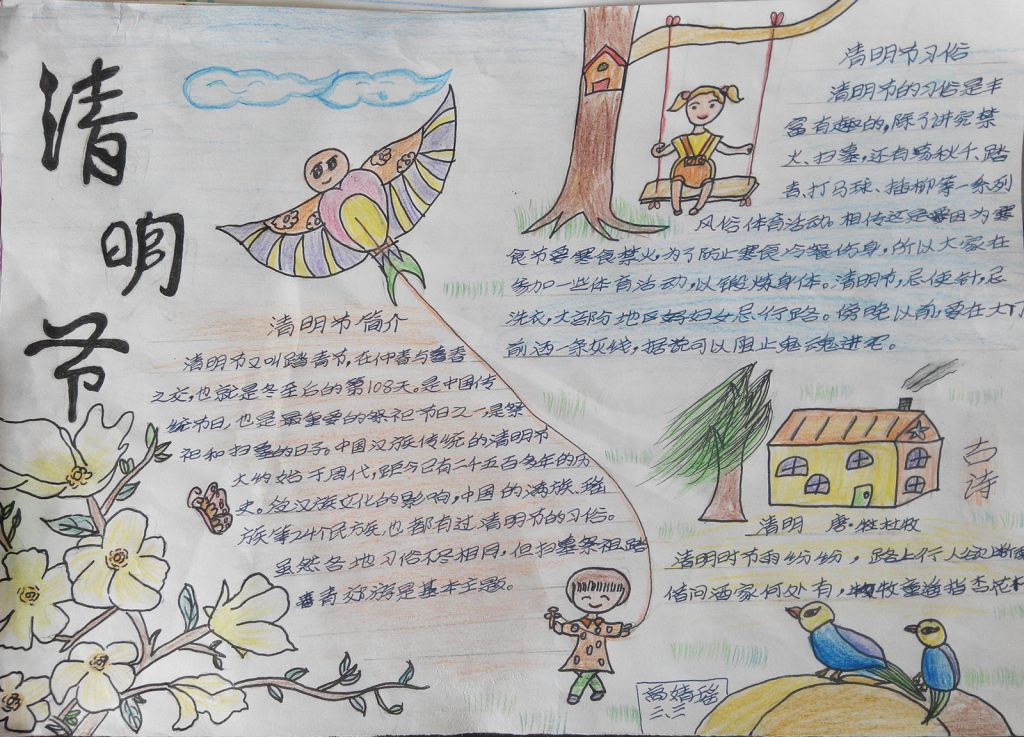 清明节
清明节简介
清明节又叫踏青节,在仲春与暮春
之交,也就是冬至后的第108天。是中国传
统节日,也是最重要的祭祀节日之一,是祭
祀和扫墓的日子。中国汉族传统的清明节
大约始于周代,距今已有二千五百多年的历
史。受汉族文化的影响,中国的满族、
族等24个民族,也都有过清明节的习俗。
虽然各地习俗不尽相同,但扫墓祭祖、踏
青郊游是基本主题。
清明节习俗
清明节的习俗是丰
富有趣的,除了讲究禁
火、扫墓,还有荡秋千、踏
青、打马球、插柳等一系列
风俗体育活动。相传这是因为寒
食节要寒食禁火,为了防止寒食冷餐伤身,所以大家在
参加一些体育活动,以锻炼身体。清明节,忌使针,忌
洗衣,大部分地区妇女忌行路。傍晚以前,要在大门
前洒一条灰线,据说可以阻止鬼魂进宅。
古诗
清明 唐·杜牧
清明时节雨纷纷,路上行人欲断
借问酒家何处有,牧童遥指杏花
三、三